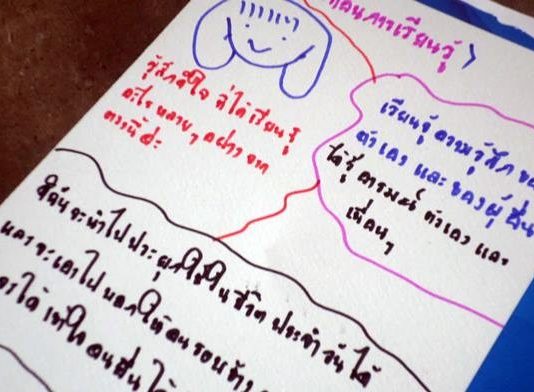 การเรียนรู้
รู้สึกดีใจ ที่ได้เรียนรู้
อะไร หลายๆ อย่าง จาก
ตรงนี้ ค่ะ
เรียนรู้ ความรู้สึก
ตัวเอง และ ของผู้อื่น
ได้รู้ อารมณ์ ตัวเอง และ
เพื่อนๆ
สิ่งนี้จะนำไปประยุกใช้ในชีวิตประจำวันได้
และจะเอาไปบอกให้คนรอบข้าง
ได้ เข้าใจคนอื่น